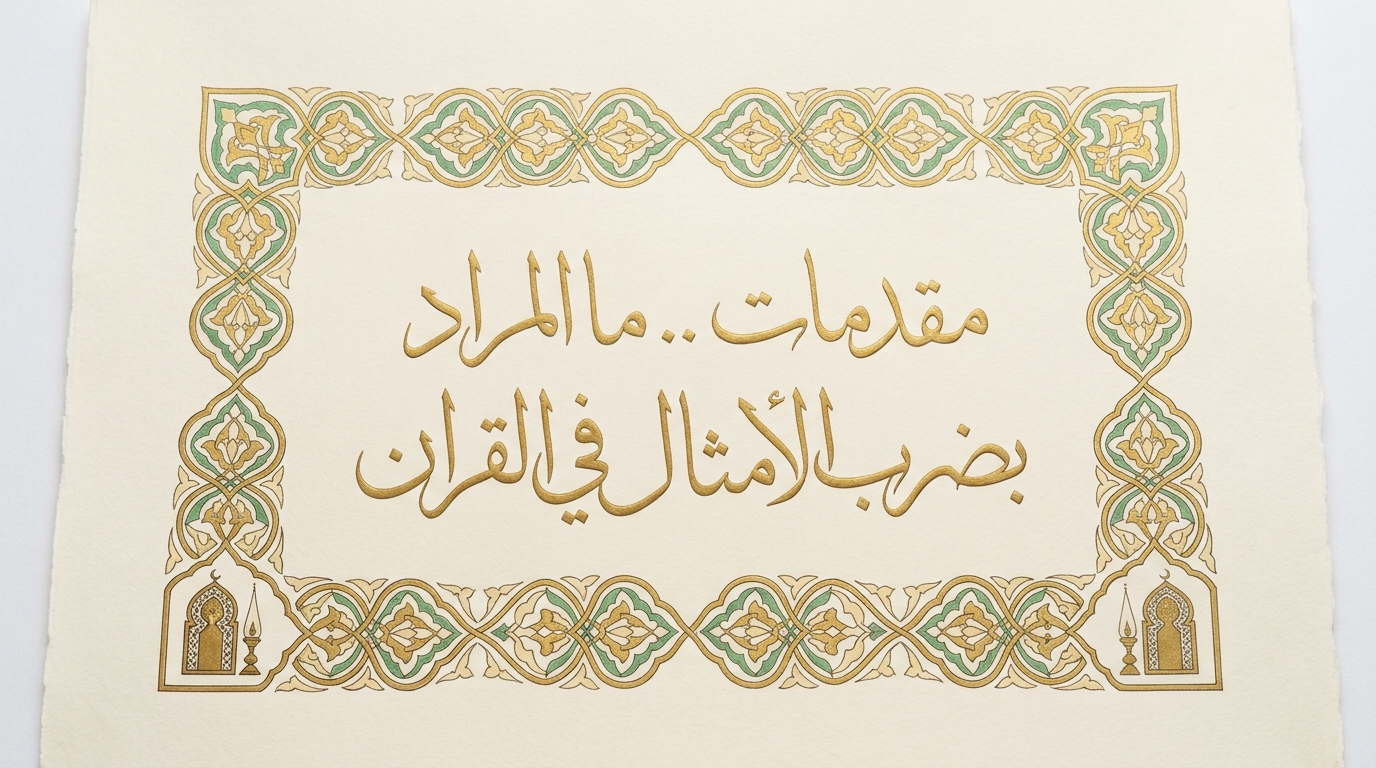 مقدمات .. ما المراد
بضرب الأمثال في القران